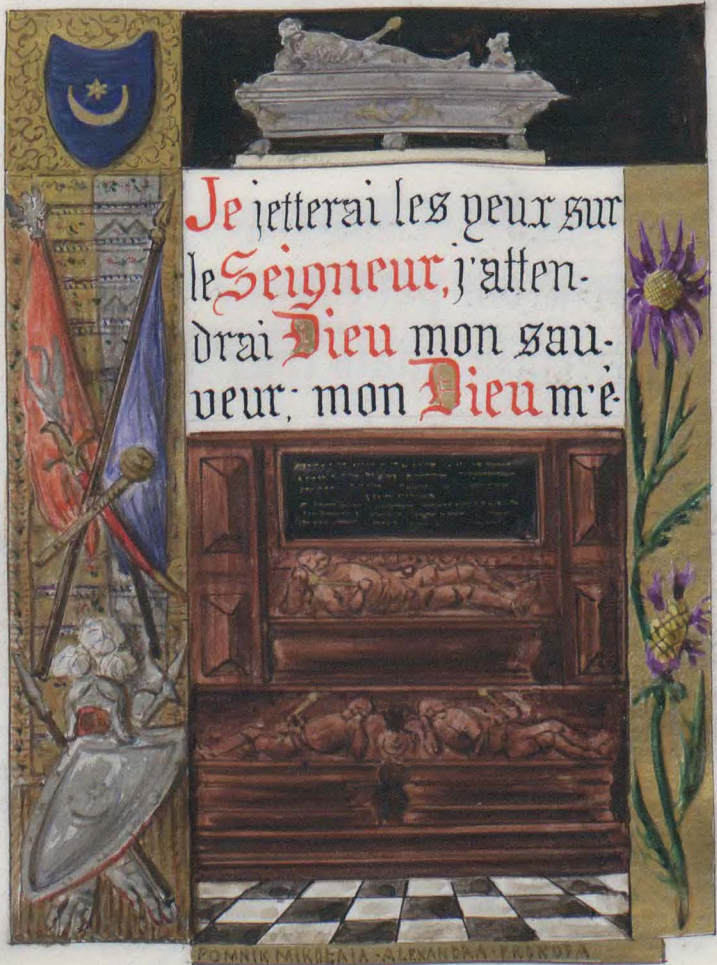 Je jetterai les yeux sur
le Seigneur, j'atten-
drai Dieu mon sau-
veur; mon Dieu m'é-
POMNIK MIKOŁAIA · ALEXANDRA · PROKOPA